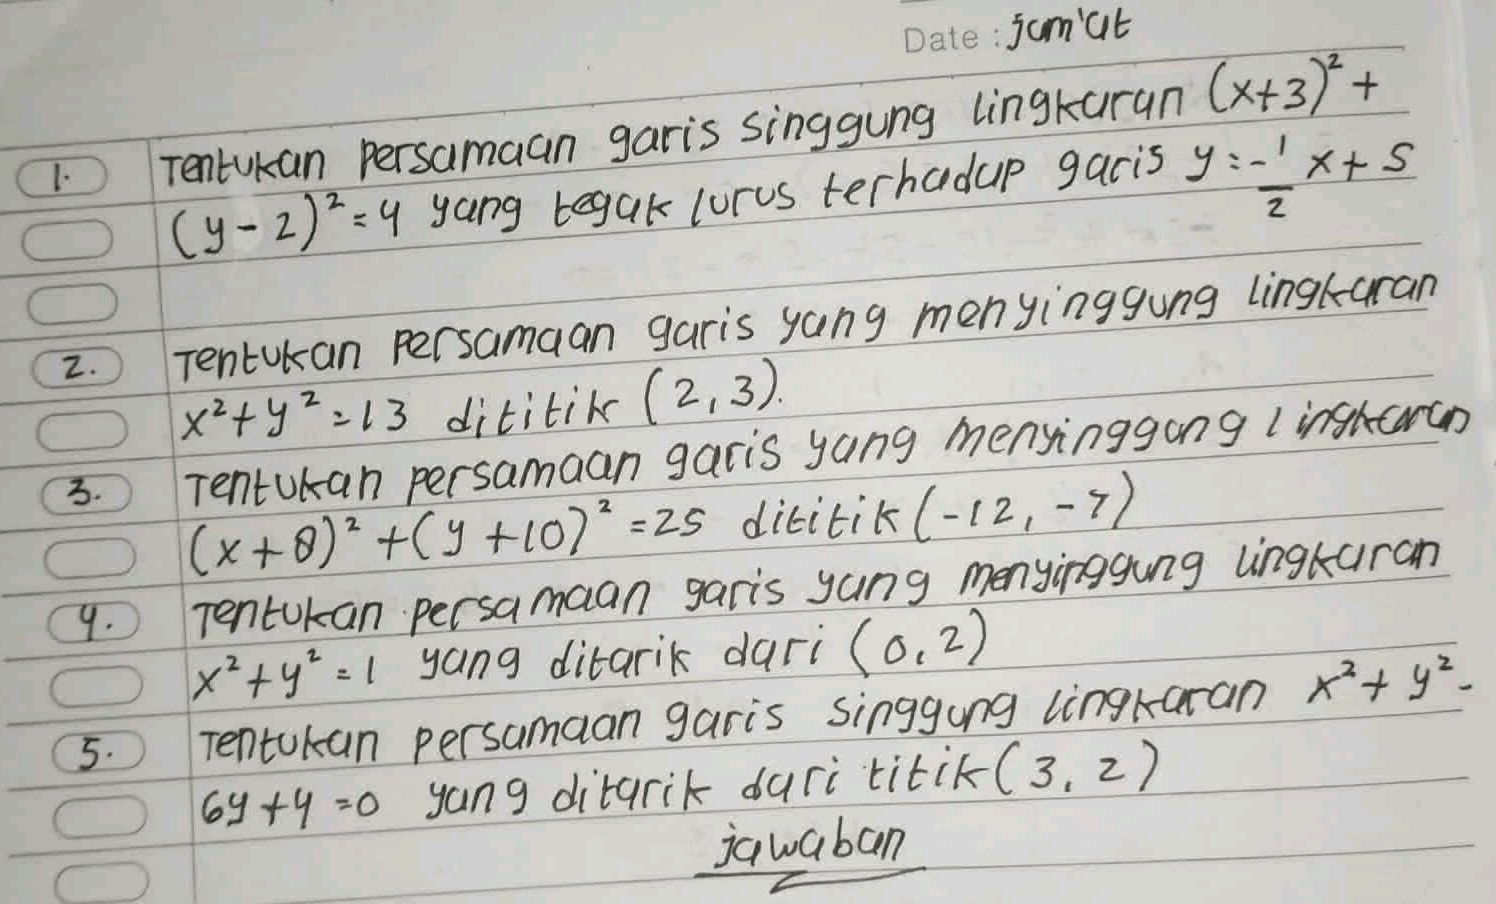 Date : jum'at
1. Tentukan persamaan garis singgung lingkaran (x+3)² +
(y-2)² = 4 yang tegak lurus terhadap garis y = -1/2 x + 5
2. Tentukan persamaan garis yang menyinggung lingkaran
x² + y² = 13 dititik (2,3).
3. Tentukan persamaan garis yang menyinggung lingkaran
(x+8)² + (y+10)² = 25 dititik (-12, -7)
4. Tentukan persamaan garis yang menyinggung lingkaran
x² + y² = 1 yang ditarik dari (0,2)
5. Tentukan persamaan garis singgung lingkaran x² + y² -
6y + 4 = 0 yang ditarik dari titik (3,2)
jawaban